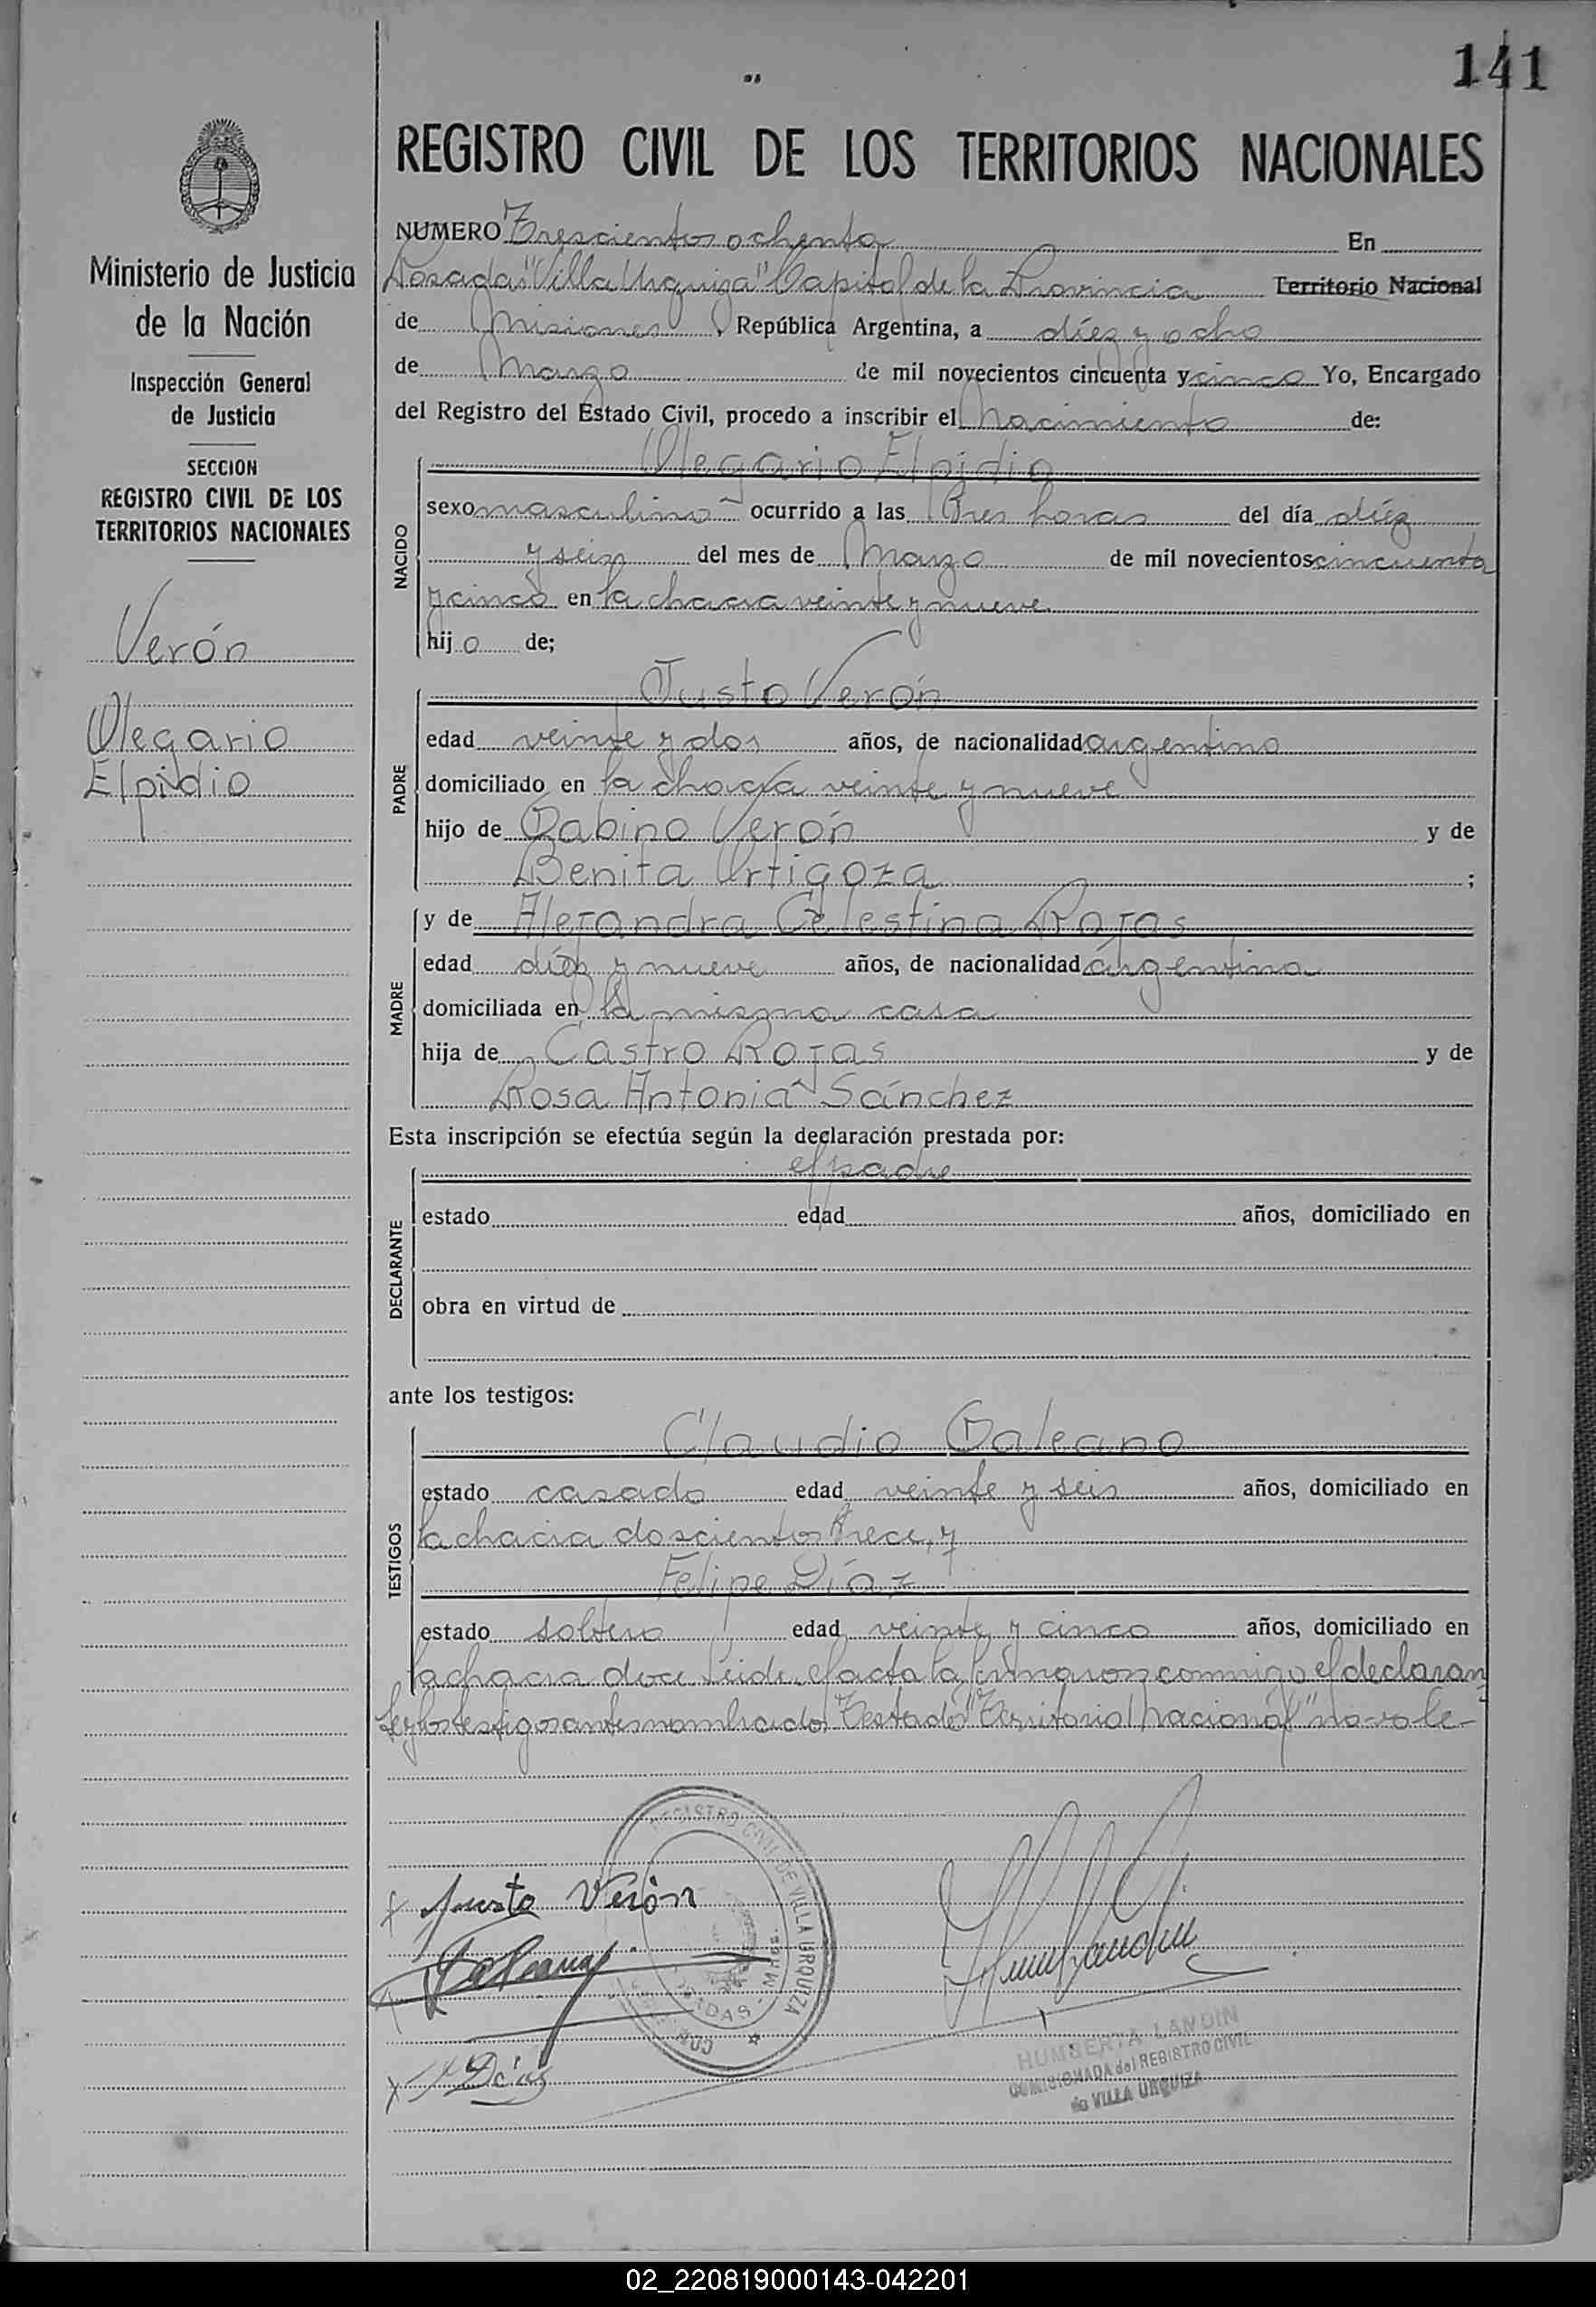 141
REGISTRO CIVIL DE LOS TERRITORIOS NACIONALES
Ministerio de Justicia
de la Nación
Inspección General
de Justicia
SECCION
REGISTRO CIVIL DE LOS
TERRITORIOS NACIONALES
Verón
Olegario
Elpidio
NUMERO Trescientos ochenta En
Posadas "Villa Urquiza" Capital de la Provincia Territorio Nacional
de Misiones, República Argentina, a diéz y ocho
de Marzo de mil novecientos cincuenta y cinco Yo, Encargado
del Registro del Estado Civil, procedo a inscribir el Nacimiento de:
NACIDO
Olegario Elpidio
sexo masculino ocurrido a las Tres horas del día diéz
y seis del mes de Marzo de mil novecientos cincuenta
y cinco en la chacra veinte y nueve
hijo de;
PADRE
Justo Verón
edad veinte y dos años, de nacionalidad argentino
domiciliado en la chacra veinte y nueve
hijo de Gabino Verón y de
Benita Ortigoza ;
MADRE
y de Alejandra Celestina Rojas
edad diéz y nueve años, de nacionalidad argentina
domiciliada en la misma casa
hija de Castro Rojas y de
Rosa Antonia Sánchez
Esta inscripción se efectúa según la declaración prestada por:
DECLARANTE
el padre
estado edad años, domiciliado en
obra en virtud de
ante los testigos:
TESTIGOS
Claudio Galeano
estado casado edad veinte y seis años, domiciliado en
la chacra doscientos trece, y
Felipe Díaz
estado soltero edad veinte y cinco años, domiciliado en
la chacra doce Leida el acta la firmaron conmigo el declaran
te y los testigos antes nombrados Testado "Territorio Nacional" no vale-
REGISTRO CIVIL DE VILLA URQUIZA
POSADAS - Mnes.
x Justo Verón
Galeano
x Díaz
HUMBERTA LANDIN
COMISIONADA del REGISTRO CIVIL
de VILLA URQUIZA
02_220819000143-042201